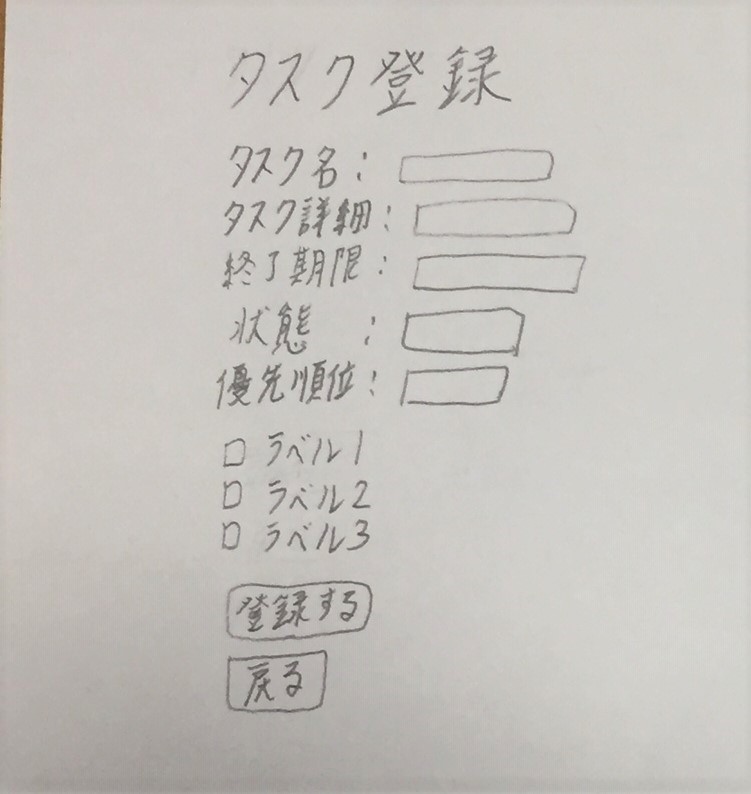 タスク登録
タスク名:
タスク詳細:
終了期限:
状態 :
優先順位:
ラベル1
ラベル2
ラベル3
登録する
戻る